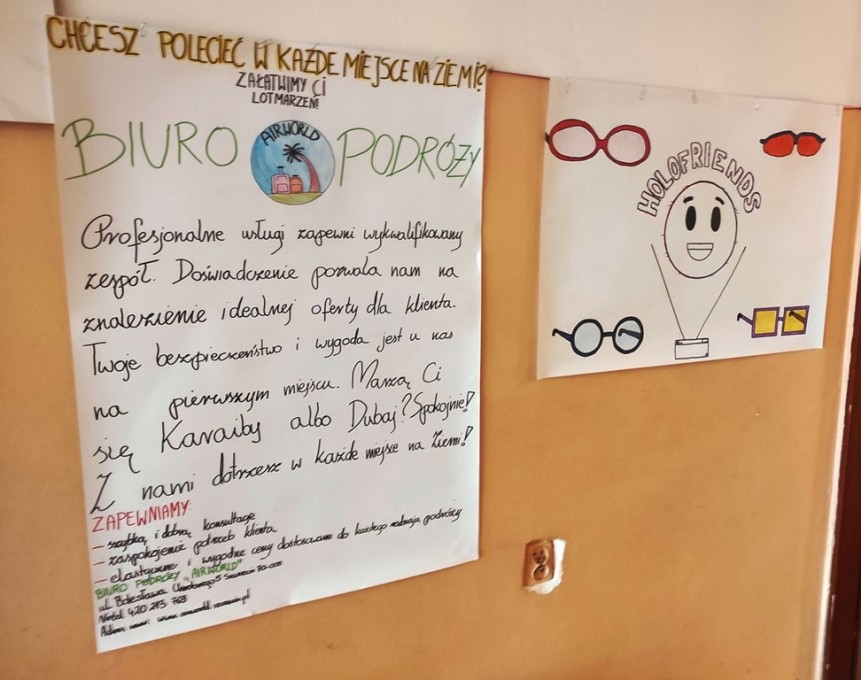 CHCESZ POLECIEĆ W KAŻDE MIEJSCE NA ZIEMI?
ZAŁATWIMY CI
LOT MARZEŃ!
BIURO AIRWORLD PODRÓŻY
Profesjonalne usługi zapewni wykwalifikowany
zespół. Doświadczenie pozwala nam na
znalezienie idealnej oferty dla klienta.
Twoje bezpieczeństwo i wygoda jest u nas
na pierwszym miejscu. Marzą Ci
się Karaiby albo Dubaj? Spokojnie!
Z nami dotrzesz w każde miejsce na Ziemi!
ZAPEWNIAMY:
- szybką i dobrą konsultację
- zaspokojenie potrzeb klienta
- elastyczne i wygodne ceny dostosowane do każdego rodzaju podróży
BIURO PODRÓŻY "AIRWORLD"
ul. Bolesława 5
420 213 769
HOLOFRIENDS